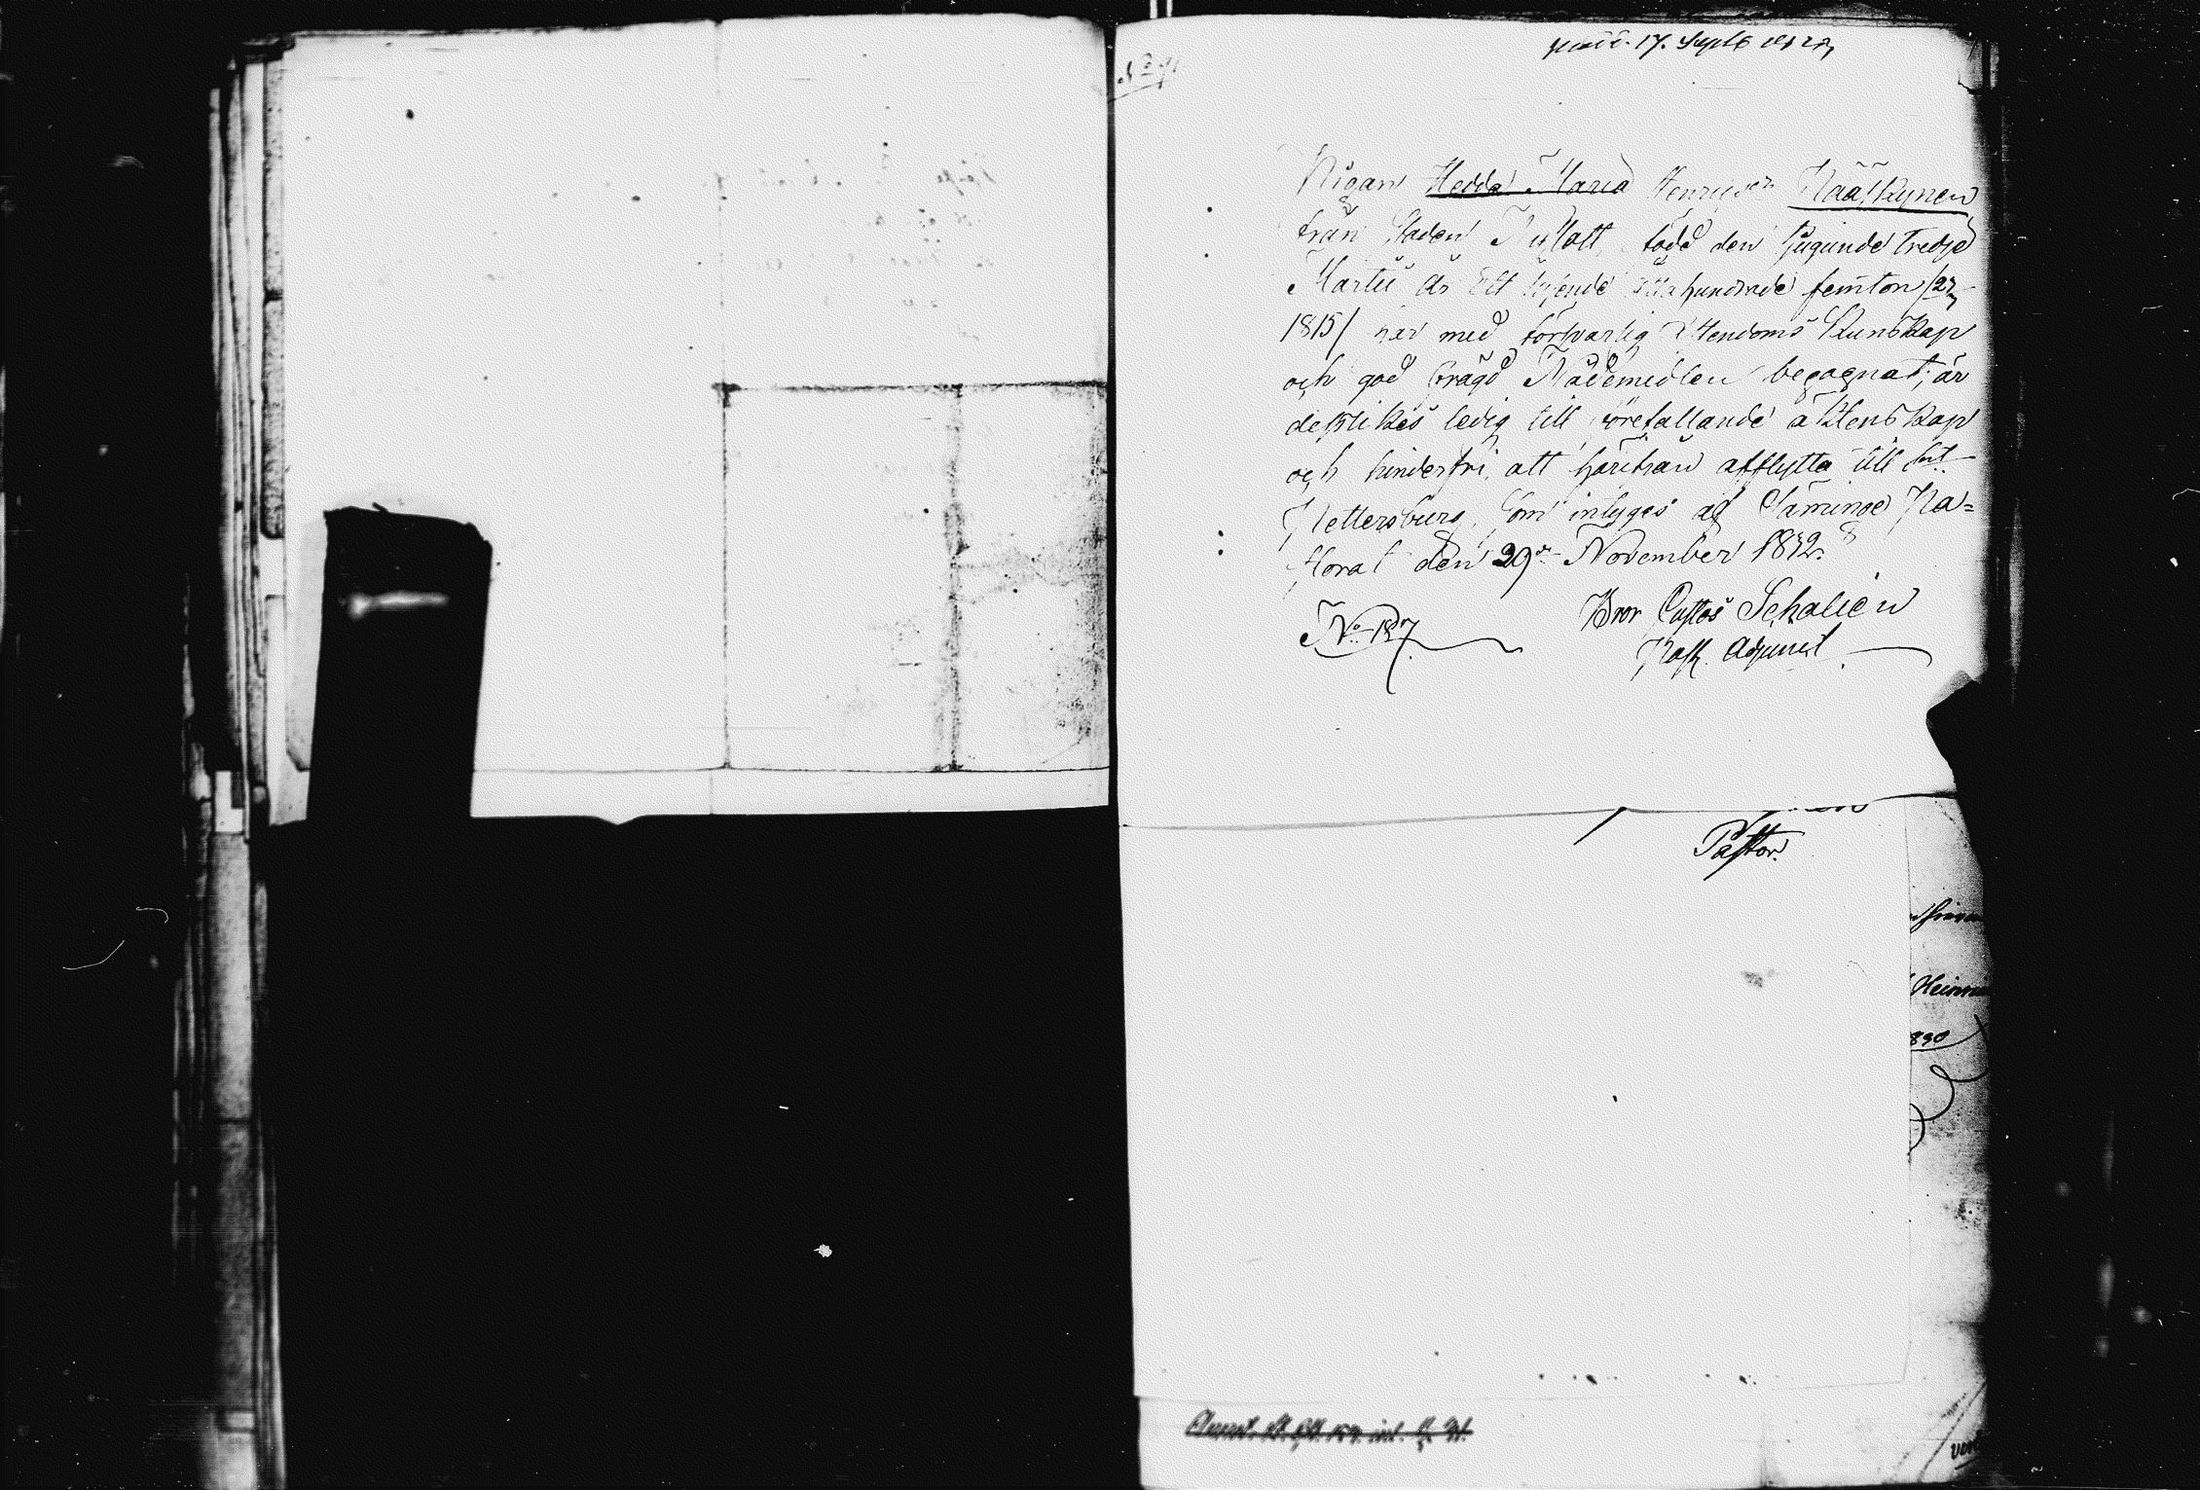 17. Septb
Pigan Hedda Maria Henricsr. Pääskynen
från Staden Nyslott, född den tjugunde tredje
Martii År Ett tusende åttahundrade femton /23
1815/ har med försvarlig Christendoms Kunskap
och god frägd Nådemedlen begagnat; är
desslikes ledig till förefallande äktenskap
och hinderfri, att härifrån afflytta till St.
Pettersburg, som intygas af Säminge Pa=
storat den 29de November 1842.
No 127
Bror Schalién
Past. Adjunct
Pastor.
Heinri
830